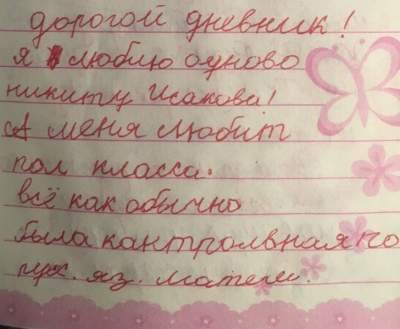 дорогой дневник!
я люблю одново
никиту Исакова!
А меня любит
пол класса.
всё как обычно
была кантролвная по
рус. яз. матем.